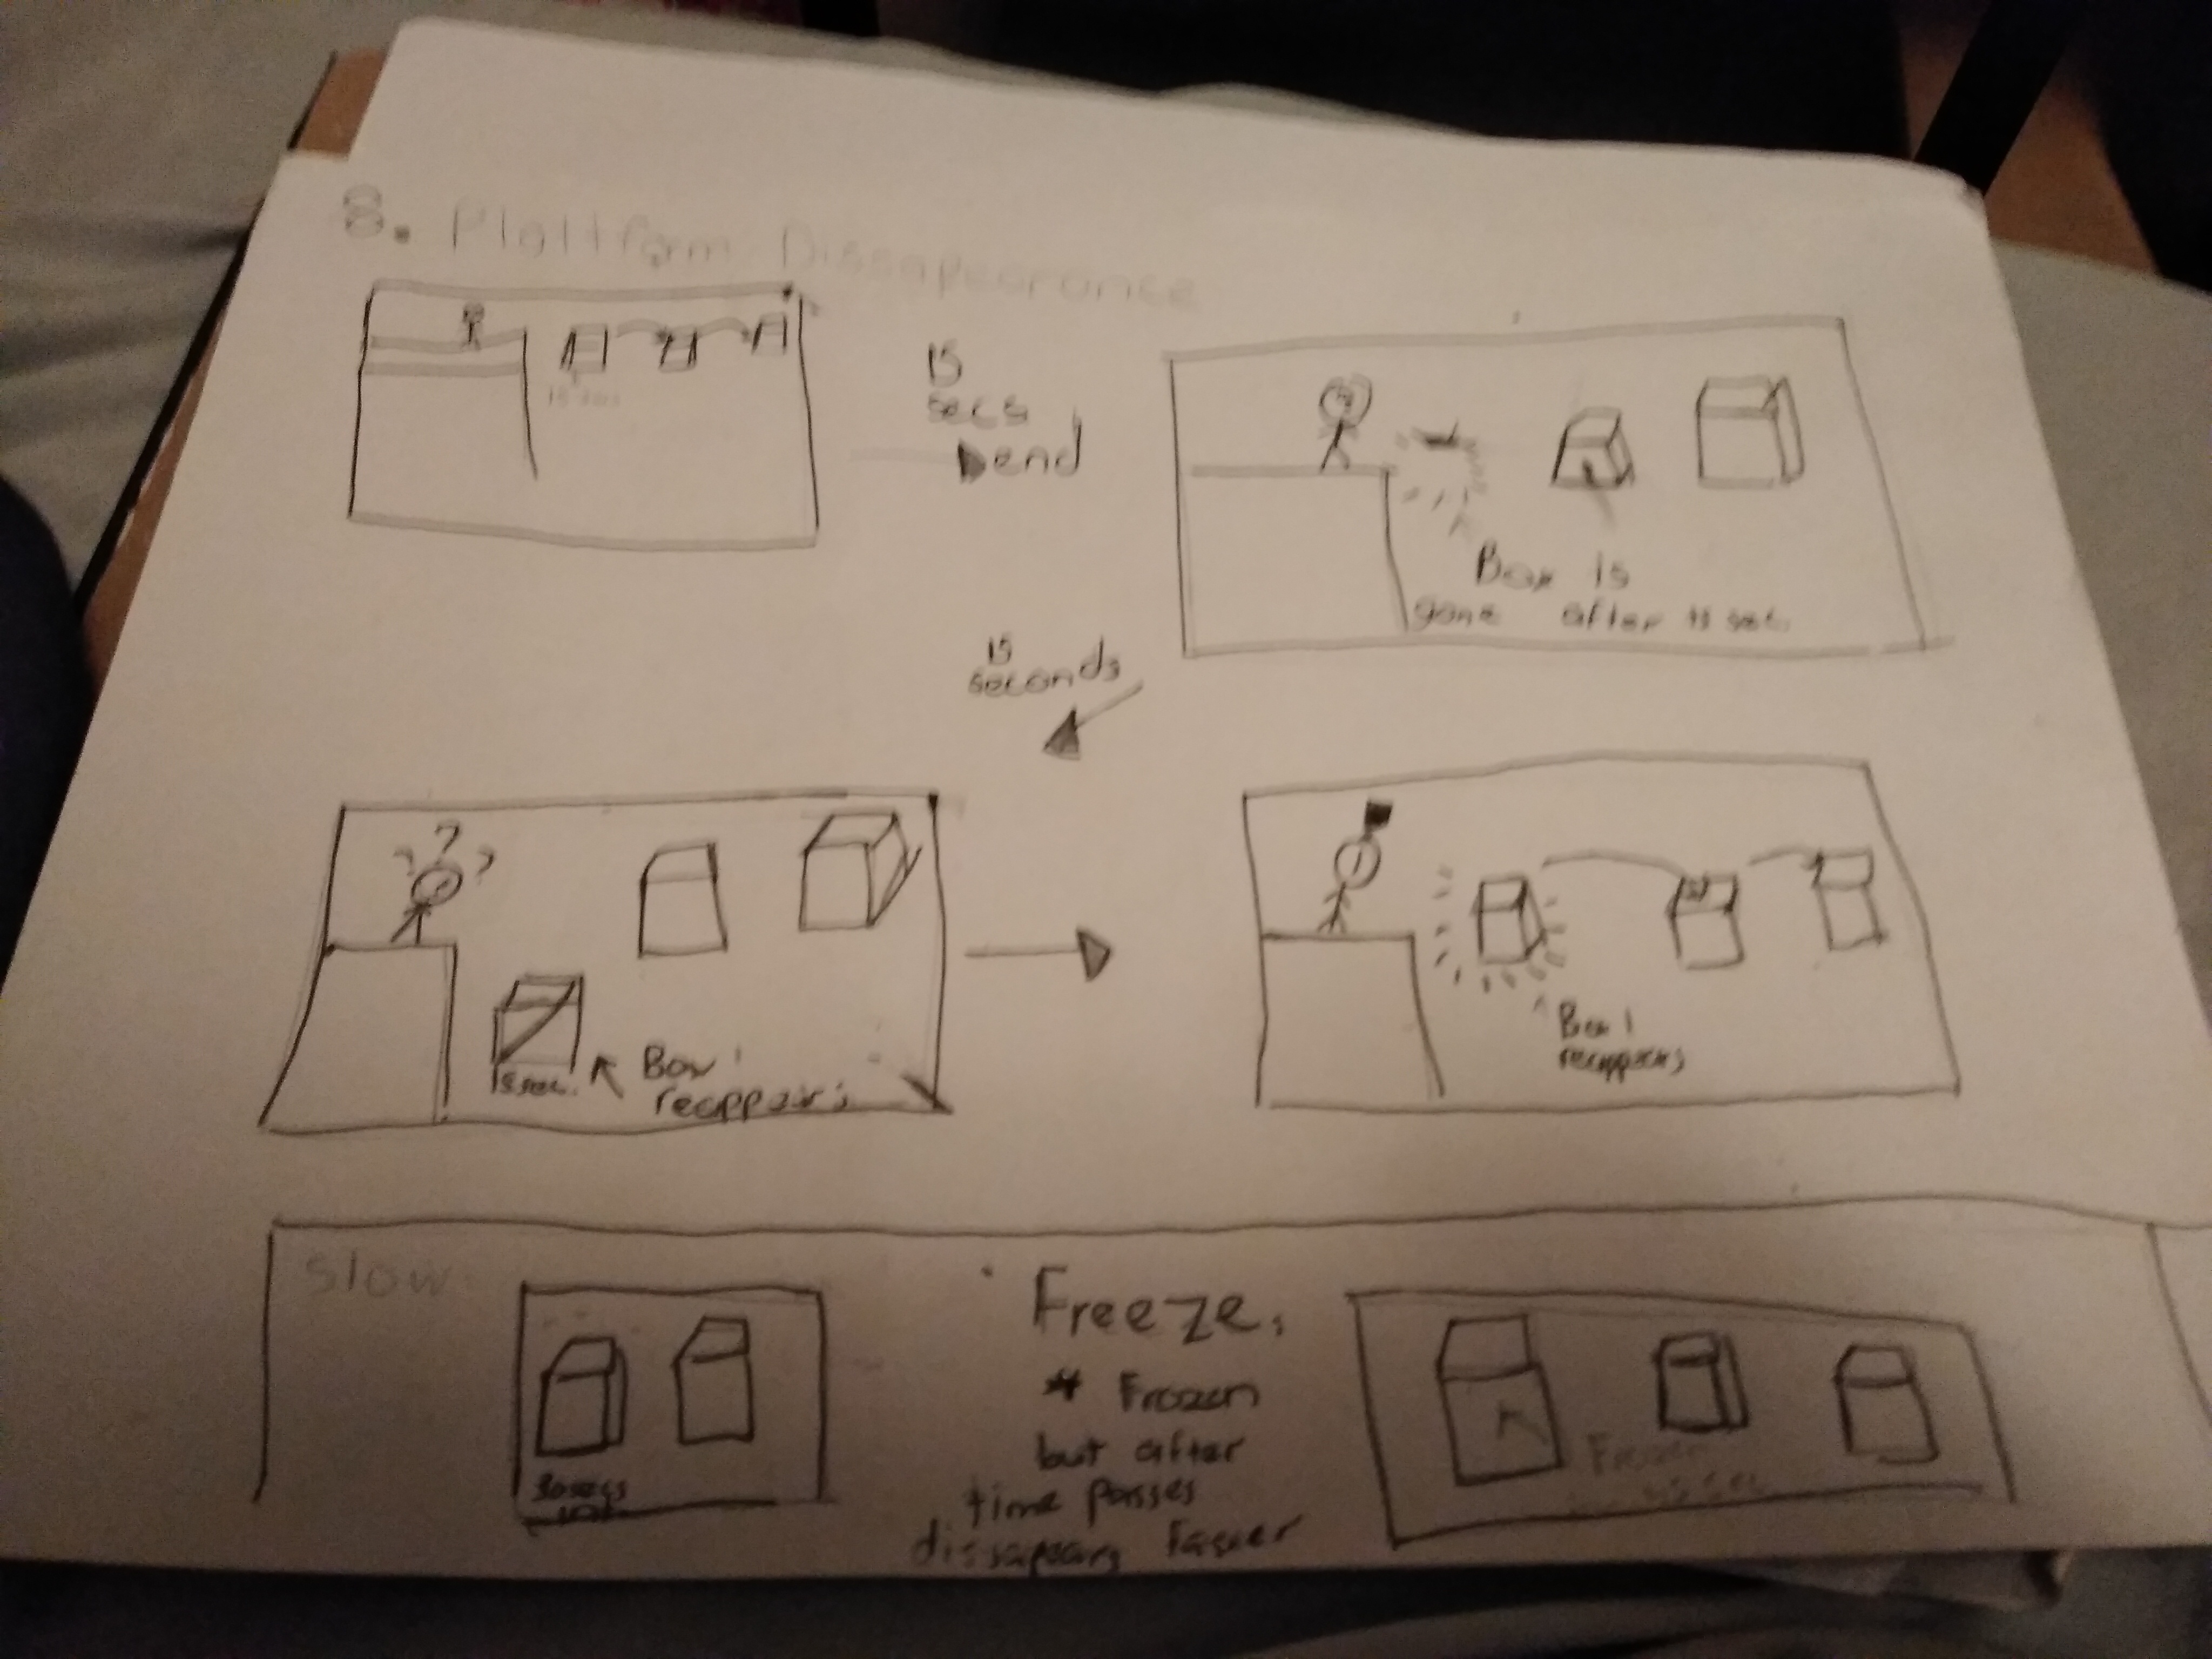 8. Plattform Dissapearance
15 sec
15
secs
end
Box is
gone after 15 sec.
15
seconds
? ? ?
Box 1
reappairs
15 sec.
Box 1
reappairs
Slow
Freeze.
* Frozen
but after
time passes
dissapears Faster
30 secs
Frozen